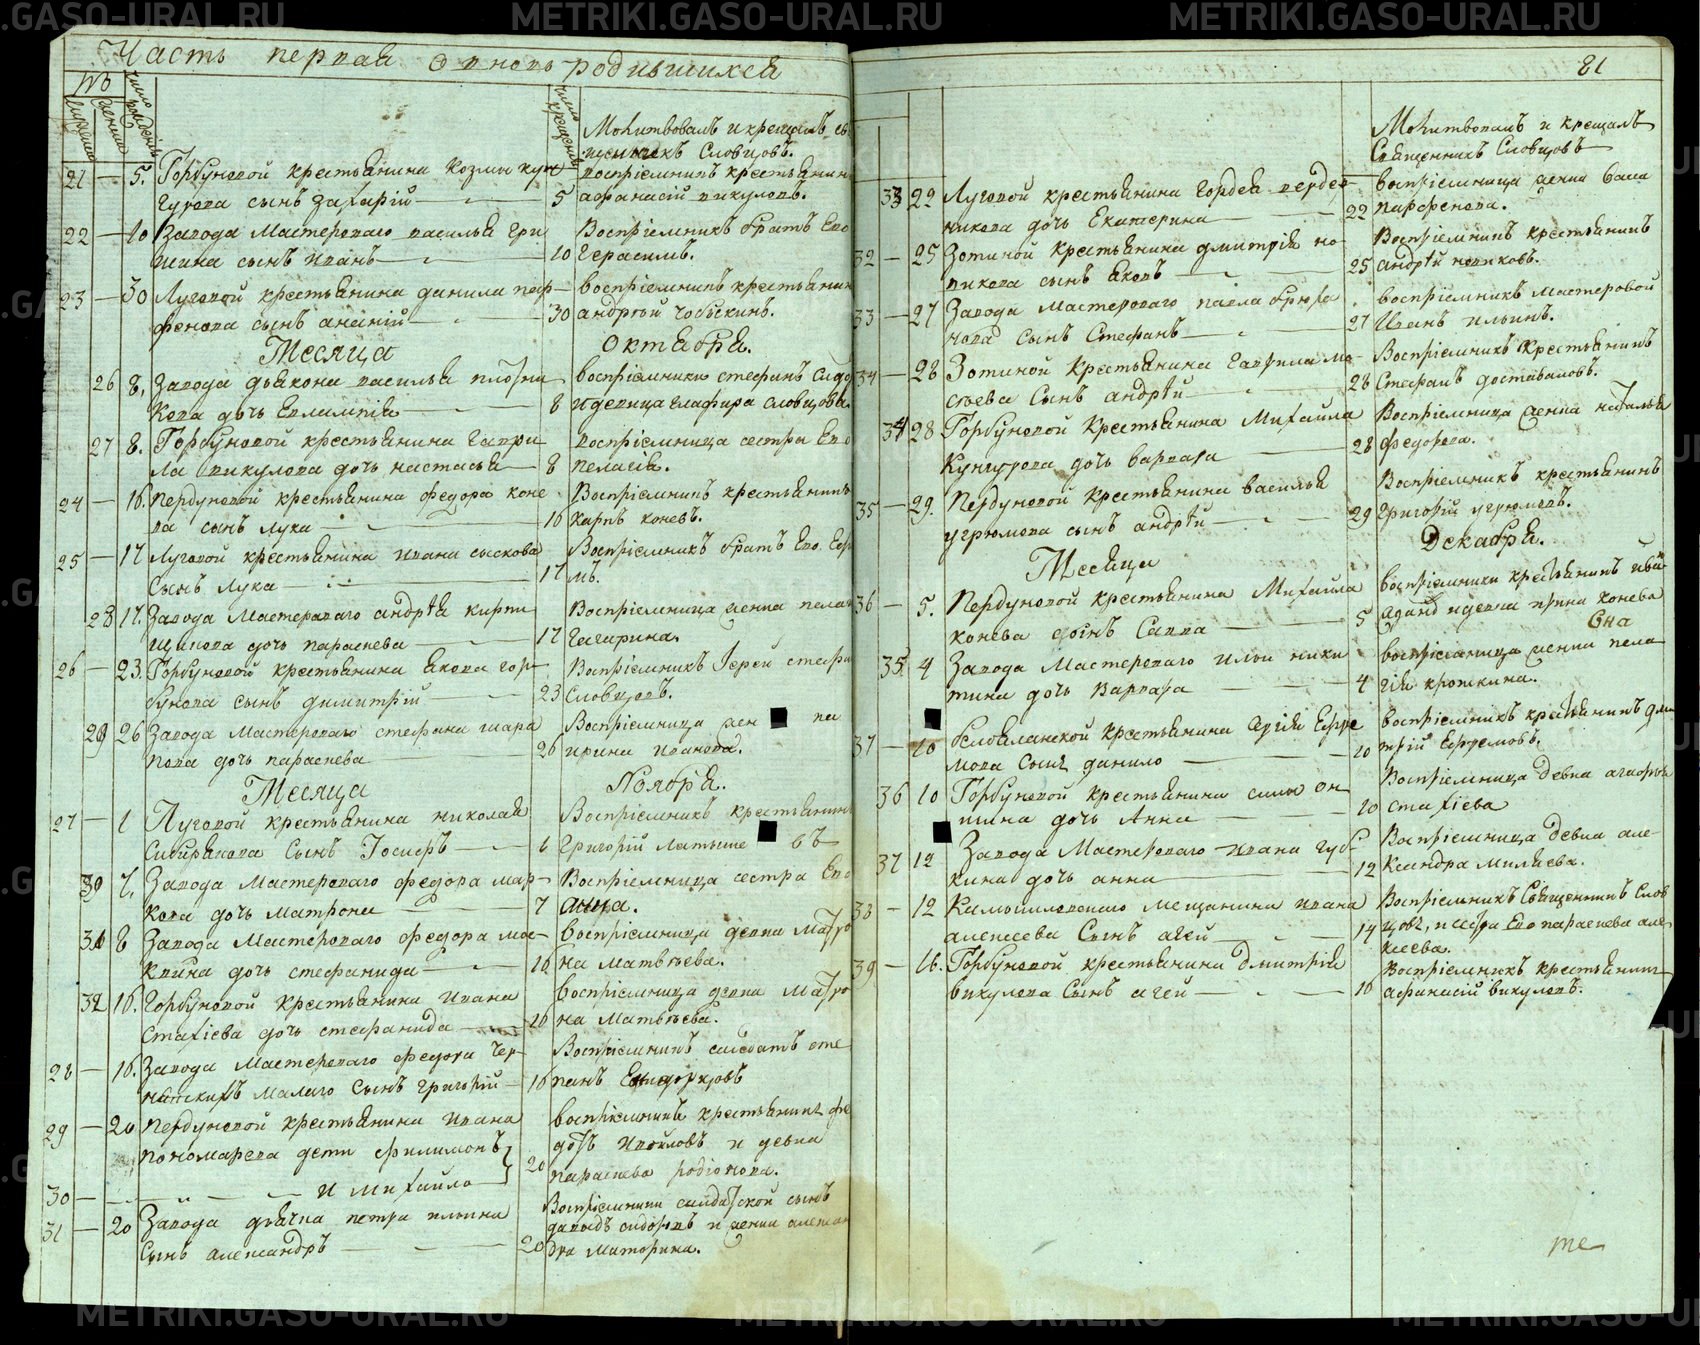 METRIKI.GASO-URAL.RU METRIKI.GASO-URAL.RU METRIKI.GASO-URAL.RU
Часть первая о вновь родившихся
81
№
число рождения
число крещения
Молитвовалъ и крещалъ
Словцовъ.
21 — 5. Горбуновой крестьянина Козмы
сынъ Захарій — 5
воспріемникъ крестьянин
афанасій викуловъ.
22 — 10 Завода Мастероваго василья гри
шина сынъ иванъ — 10
Воспріемникъ братъ Ево
Герасимъ.
23 — 30 Луговой крестьянина данила пар
фенова сынъ ананій — 30
воспріемникъ крестьянин
андрѣй
Месяца Октября.
26 8. Завода дьякона василья плотни
кова дочь Евлампія — 8
воспріемники стефанъ сидо
и девица глафира словцова
27 8. Горбуновой крестьянина гаври
ла викулова дочь настасья — 8
воспріемница сестра Ево
пелагія.
24 — 16. Пердуновой крестьянина федора коне
ва сынъ лука — 16
Воспріемникъ крестьянинъ
карпъ коневъ.
25 — 17 Луговой крестьянина ивана сыскова
Сынъ лука — 17
Воспріемникъ братъ Ево
28 17. Завода Мастероваго андрѣя кирпи
щикова дочь параскева — 17
Воспріемница женка пелаг
Гагарина.
26 — 23. Горбуновой крестьянина якова гор
бунова сынъ димитрій — 23
Воспріемникъ Іерей стефа
Словцовъ.
29 26 Завода Мастероваго стефана шара
пова дочь параскева — 26
Воспріемница жен ка
ирина иванова.
Месяца Ноября.
27 — 1 Луговой крестьянина николая
Сибирякова Сынъ Іосифъ — 1
Воспріемникъ крестьянинъ
Григорій Латыше въ
30 7. Завода Мастероваго федора мар
кова дочь матрона — 7
Воспріемница сестра Ево
анна.
31 8 Завода Мастероваго федора мос
квина дочь стефанида — 10
воспріемница девка Матро
на Матвѣева.
32 10. Горбуновой Крестьянина Ивана
Стахіева дочь стефанида — 10
воспріемница девка Матро
на Матвѣева.
28 — 10. Завода Мастероваго федора чер
малаго Сынъ григорій — 10
Воспріемникъ салдатъ сте
панъ
29 — 20 Пердуновой крестьянина ивана
пономарева дети филимонъ
20
30 — и михайло
воспріемники крестьянинъ фе
дотъ и девка
параскева родіонова.
31 — 20 Завода дьячка петра ильина
Сынъ александръ — 20
Воспріемники салдатской сынъ
давыдъ сидоровъ и женка алексан
дра маторина.
Молитвовалъ и крещалъ
Священникъ Словцовъ
33 22 Луговой крестьянина Гордея
никова дочь Екатерина — 22
воспріемница женка
парфенова.
32 — 25 Зотиной крестьянина дмитрія но
викова сынъ яковъ — 25
Воспріемникъ крестьянинъ
андрѣй новиковъ.
33 — 27 Завода мастероваго павла брюха
нова сынъ Стефанъ — 27
воспріемникъ мастеровой
Иванъ ильинъ.
34 — 28 Зотиной крестьянина гаврила мо
сѣева Сынъ андрѣй — 28
Воспріемникъ Крестьянинъ
Стефанъ доставаловъ.
34 28 Горбуновой Крестьянина Михаила
Кунгурова дочь варвара — 28
Воспріемница женка наталья
федорова.
35 — 29. Пердуновой Крестьянина василья
угрюмова сынъ андрѣй — 29
Воспріемникъ крестьянинъ
григорій угрюмовъ.
Месяца Декабря.
36 — 5. Пердуновой крестьянина Михаила
конева сынъ Савва — 5
воспріемники крестьянинъ
и девка ирина конева
35. 4 Завода мастероваго Ильи ники
тина дочь Варвара — 4
воспріемница женка пела
гія кроткина.
37 — 10 крестьянина Сергія Ефре
мова Сынъ данило — 10
воспріемникъ крестьянинъ дми
трій Ефремовъ.
36 10 Горбуновой крестьянина силы
дочь Анна — 10
Воспріемница девка агафья
стахіева
37 12 Завода Мастероваго ивана губ
кина дочь анна — 12
Воспріемница девка але
ксандра миляева.
38 — 12 Камышловскаго мещанина ивана
алексеева Сынъ агей — 14
Воспріемникъ Священникъ Слов
цовъ, и сестра Ево параскева але
ксеева.
39 — 16. Горбуновой крестьянина дмитрія
викулова Сынъ агей — 16
воспріемникъ крестьянинъ
афанасій викуловъ.
METRIKI.GASO-URAL.RU METRIKI.GASO-URAL.RU METRIKI.GASO-URAL.RU